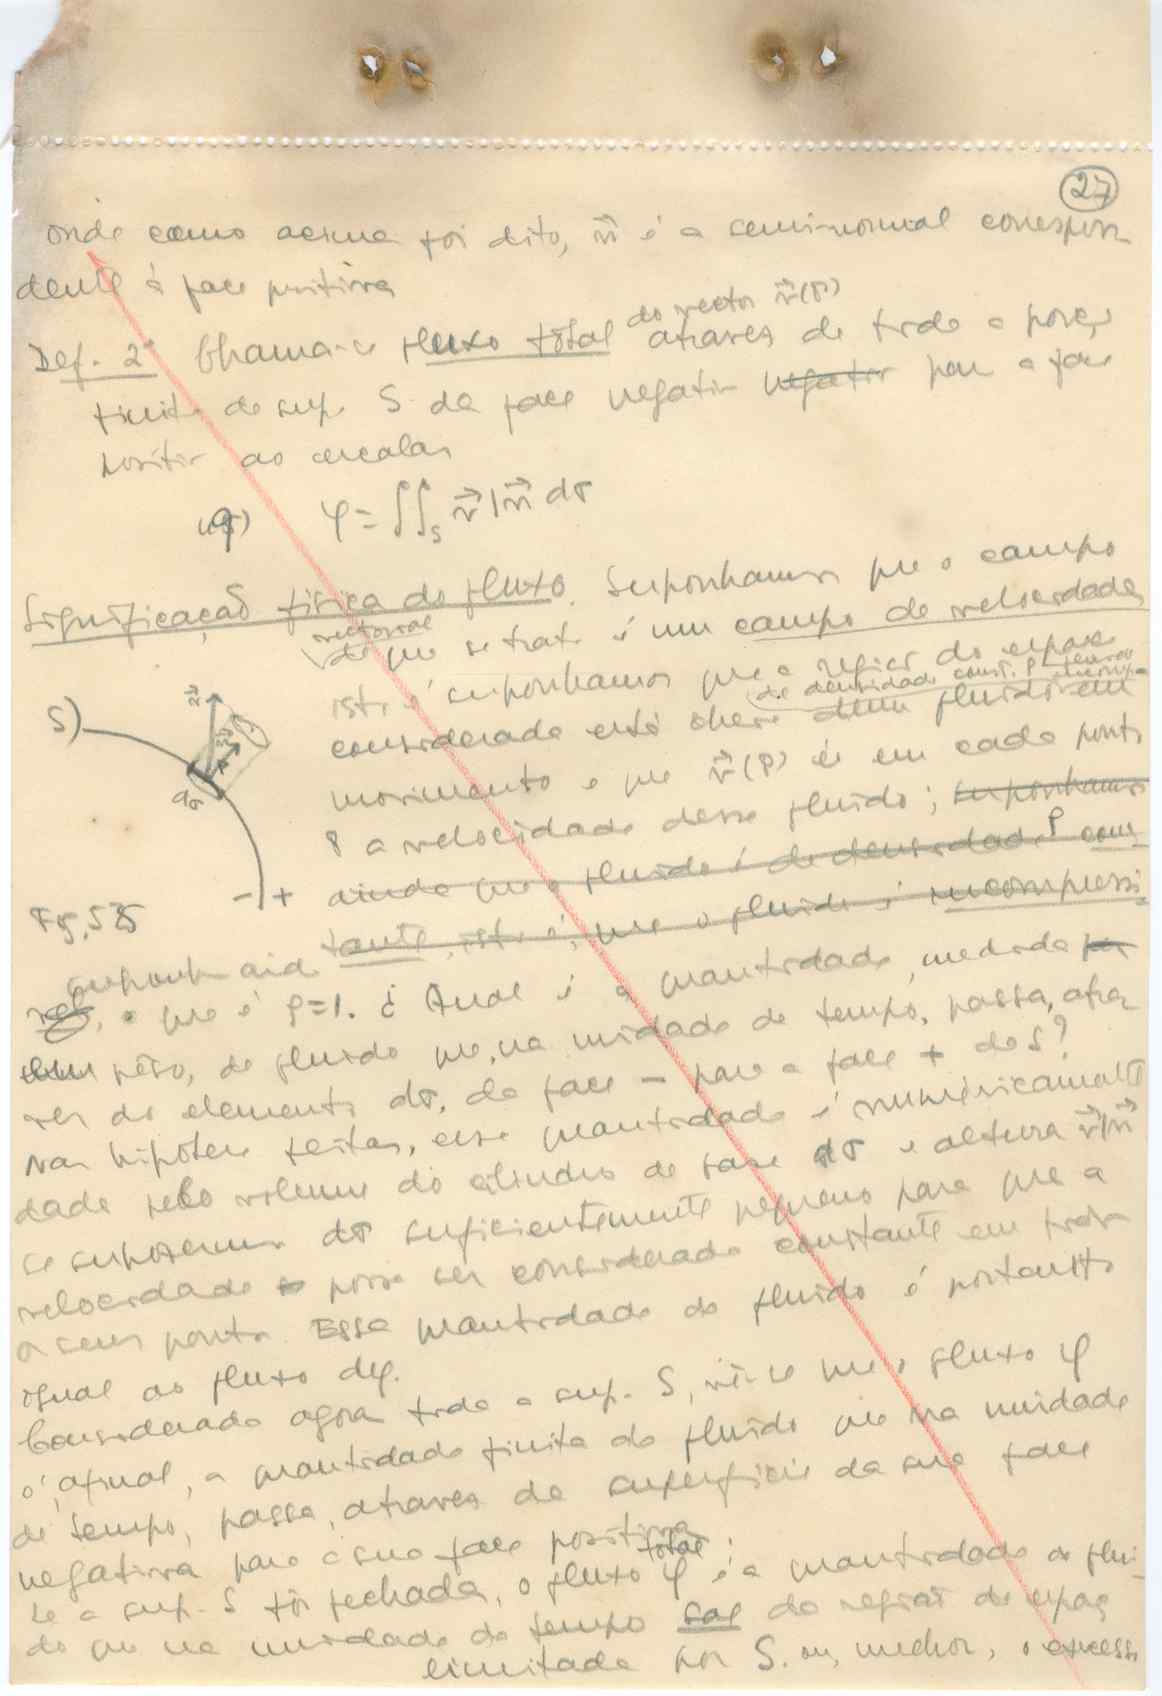 27
onde como acima foi dito, n⃗ é a semi-normal correspon
dente à face positiva
do vector v⃗(P)
Def. 2ª Chama-se fluxo total através de toda a porção
finita de sup. S da face negativa negativa para a face
positiva ao escalar
φ = ∫∫_S v⃗|n⃗ dσ
Significação física do fluxo. Suponhamos que o campo
vectorial
de que se trata é um campo de velocidades,
isto é suponhamos que a região do espaço
de densidade const. ρ
considerada está cheia dum fluido em
movimento e que v⃗(P) é em cada ponto
P a velocidade desse fluido; suponhamos
ainda que o fluido é de densidade ρ cons
tante, isto é, que o fluido é incompressí
S)
v⃗
n⃗
P
dσ
- +
Fig. 58
vel, e que é ρ=1. ¿ Qual é a quantidade, medida por
seu pêso, de fluido que, na unidade de tempo, passa, atra
vés do elemento dσ, da face - para a face + de S?
Nas hipóteses feitas, essa quantidade é numèricamente
dada pelo volume do cilindro de base dσ e altura v⃗|n⃗
se supusermos dσ suficientemente pequeno para que a
velocidade possa ser considerada constante em todos
os seus pontos. Essa quantidade de fluido é portanto
igual ao fluxo dφ.
Considerando agora toda a sup. S, vê-se que o fluxo φ
é, afinal, a quantidade finita de fluido que na unidade
de tempo, passa, através da superfície da sua face
negativa para a sua face positiva.
total
Se a sup. S fôr fechada, o fluxo φ é a quantidade de flui-
do que na unidade de tempo sai da região do espaço
limitada por S. ou, melhor, o excesso